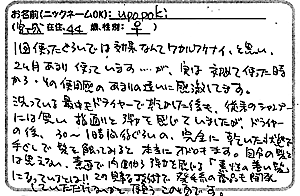 お名前(ニックネームOK): upopoki
在住・44歳・♀
1個使ったぐらいでは効果なんてワカルワケナイ、と思い、
2ヶ月あまり使っています…が、実は初めて使った時か
ら、その使用感のあまりの違いに感激してます。
洗っている最中もドライヤーで乾かした後も、従来のシャンプー
には無い指通りと弾を感じていましたが、ドライヤー
の後、30〜1時間位ぐらいの、完全に乾いた状態で
手ぐしで髪を触ってみると本当にオドロキます。自分の髪と
は思えない、素直で内側から弾力を感じる「素性の良い髪」
になっている!!この
していただいて